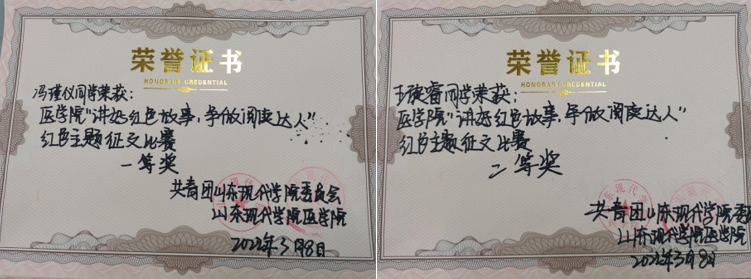 荣誉证书
HONORARY CREDENTIAL
冯瑾仪同学荣获:
医学院"讲好红色故事,争做阅读达人"
红色主题征文比赛
一等奖
共青团山东现代学院委员会
山东现代学院医学院
2022年3月8日
荣誉证书
HONORARY CREDENTIAL
睿同学荣获:
医学院"讲好红色故事,争做阅读达人"
红色主题征文比赛
二等奖
共青团山东现代学院委
山东现代学院医学院
2022年3月8日